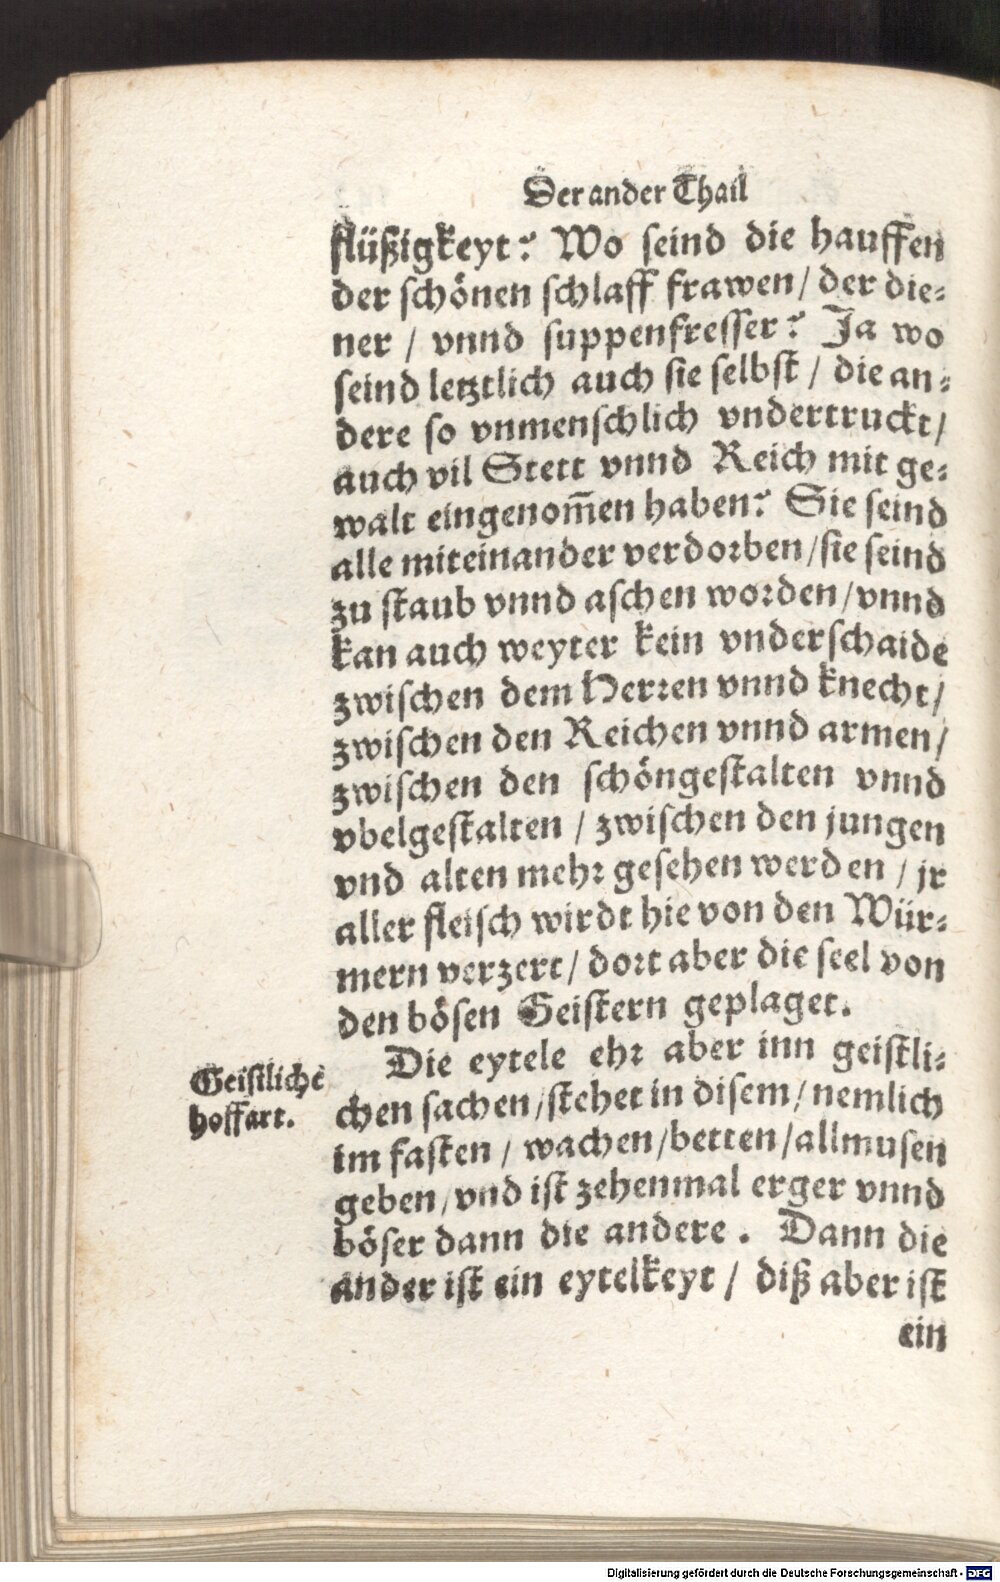 Der ander Thail
flüßigkeyt? Wo seind die hauffen
der schönen schlaff frawen / der die-
ner / vnnd suppenfresser? Ja wo
seind letztlich auch sie selbst / die an-
dere so vnmenschlich vndertruckt /
auch vil Stett vnnd Reich mit ge-
walt eingenom̃en haben? Sie seind
alle miteinander verdorben / sie seind
zu staub vnnd aschen worden / vnnd
kan auch weyter kein vnderschaide
zwischen dem Herren vnnd knecht /
zwischen den Reichen vnnd armen /
zwischen den schöngestalten vnnd
vbelgestalten / zwischen den jungen
vnd alten mehr gesehen werden / jr
aller fleisch wirdt hie von den Wür-
mern verzert / dort aber die seel von
den bösen Geistern geplaget.
Die eytele ehr aber inn geistli-
Geistliche
hoffart.
chen sachen / stehet in disem / nemlich
im fasten / wachen / betten / allmusen
geben / vnd ist zehenmal erger vnnd
böser dann die andere. Dann die
ander ist ein eytelkeyt / diß aber ist
ein
Digitalisierung gefördert durch die Deutsche Forschungsgemeinschaft - DFG